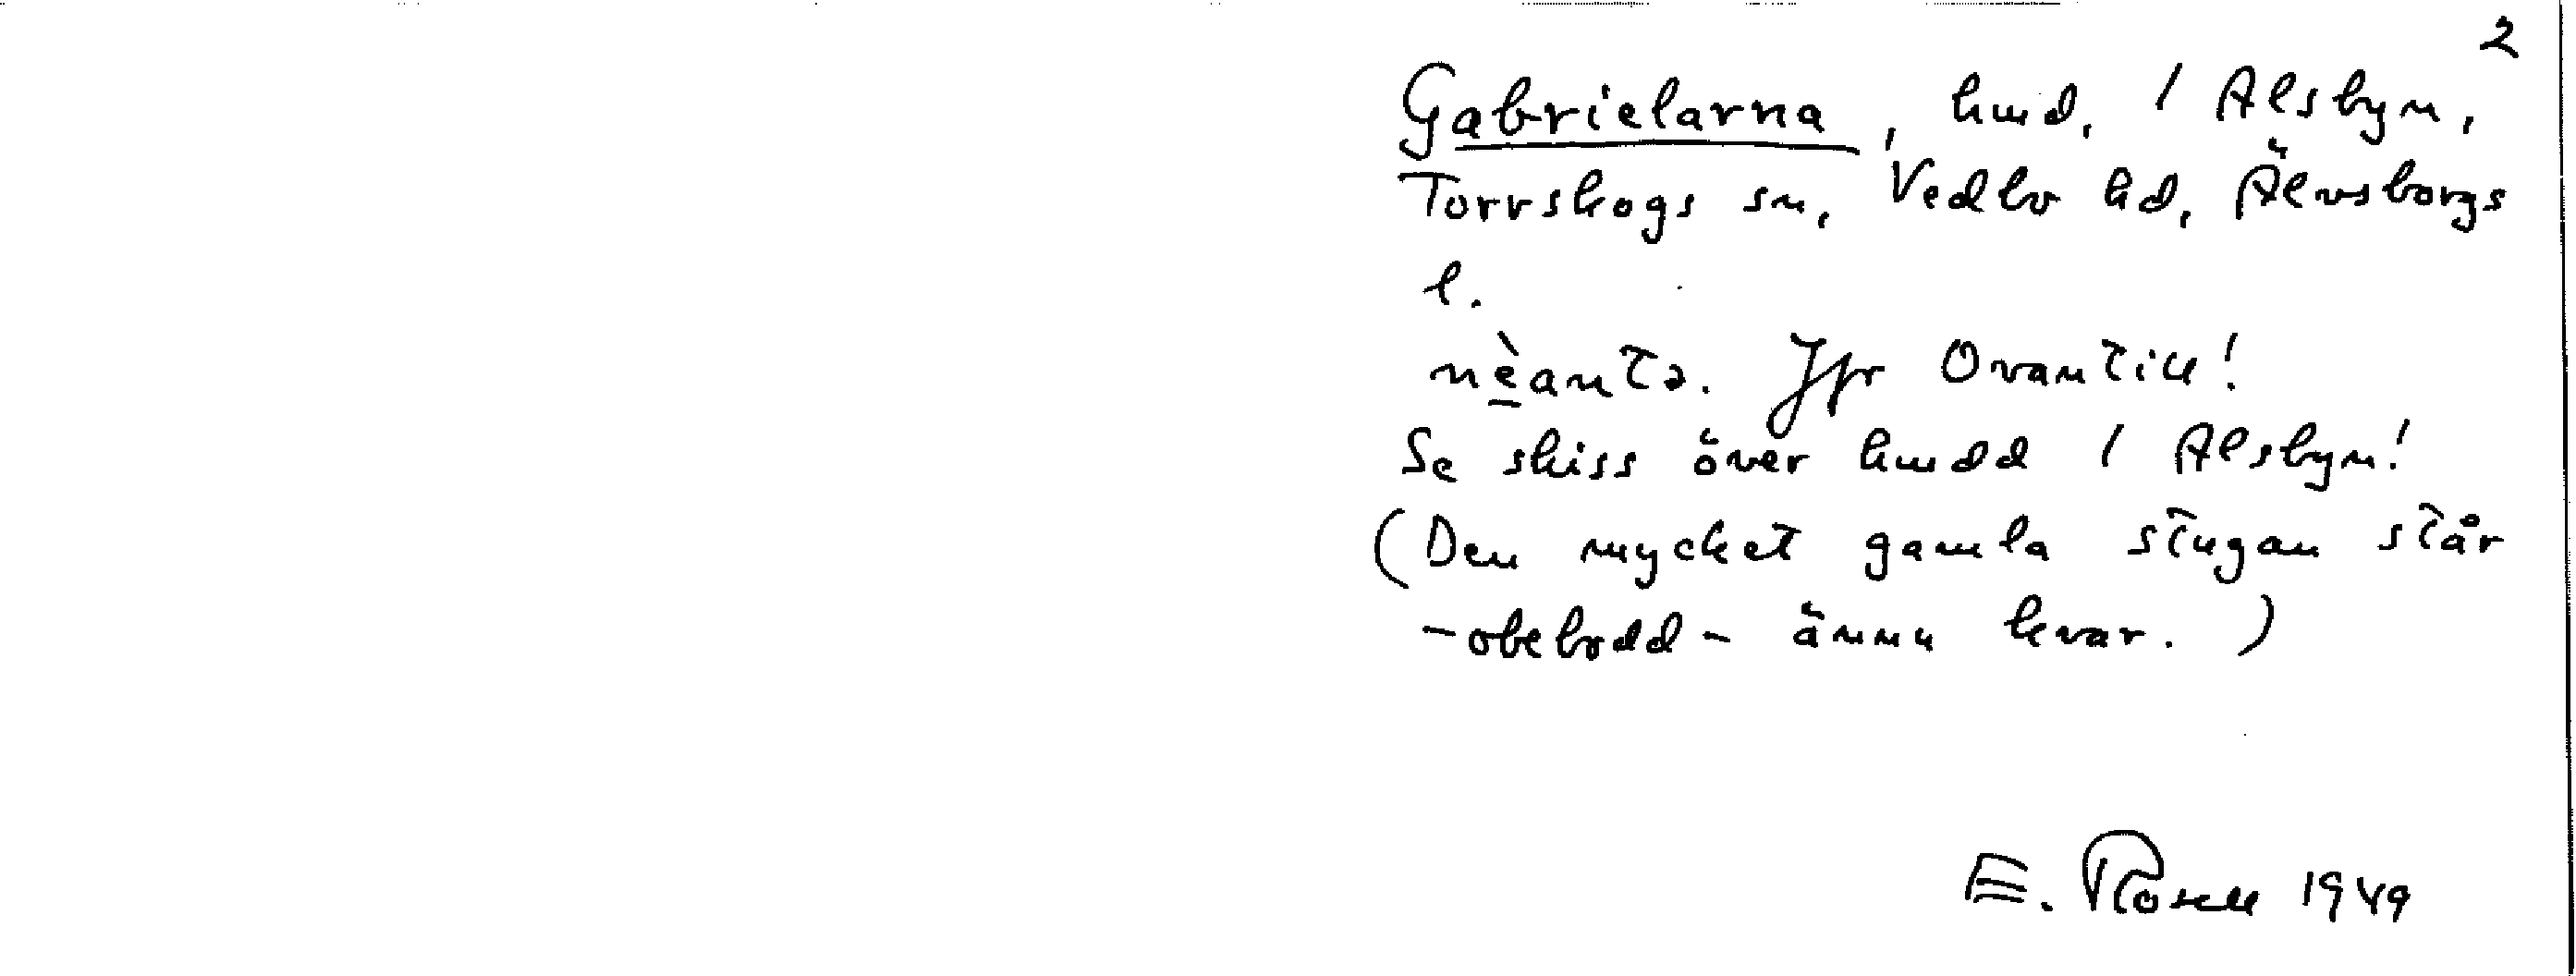 2
Gabrielarna, hmd, i Alsbyn,
Torrskogs sn, Vedbo hd, Älvsborgs
l.
nèantə. Jfr Ovantill!
Se skiss över hmdd i Alsbyn!
(Den mycket gamla stugan står
-obebodd- ännu kvar.)
E. Rosell 1949